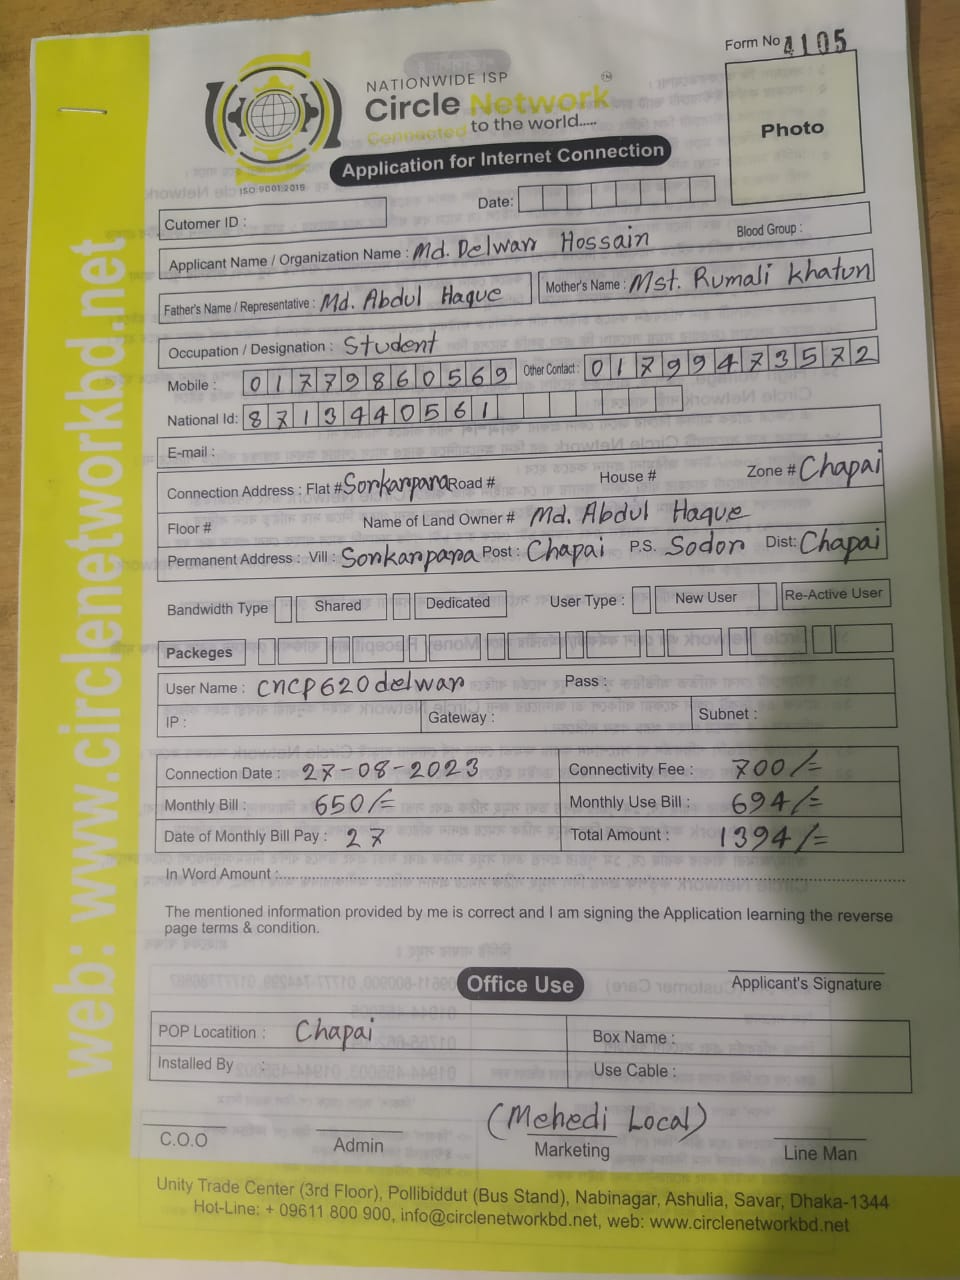 Form No 4105
NATIONWIDE ISP
Circle Network
Connected to the world.....
ISO 9001:2015
Application for Internet Connection
Photo
Date:
Cutomer ID :
Applicant Name / Organization Name : Md. Delwarr Hossain Blood Group :
Father's Name / Representative : Md. Abdul Haque Mother's Name : Mst. Rumali Khatun
Occupation / Designation : Student
Mobile : 01779860569 Other Contact : 01799473572
National Id: 8713440561
E-mail :
Connection Address : Flat # Sonkarpara Road # House # Zone # Chapai
Floor # Name of Land Owner # Md. Abdul Haque
Permanent Address : Vill : Sonkarpara Post : Chapai P.S. Sodor Dist: Chapai
Bandwidth Type Shared Dedicated User Type : New User Re-Active User
Packeges
User Name : cncp620delwar Pass :
IP : Gateway : Subnet :
Connection Date : 27-08-2023 Connectivity Fee : 700/=
Monthly Bill : 650/= Monthly Use Bill : 694/=
Date of Monthly Bill Pay : 27 Total Amount : 1394/=
In Word Amount :
The mentioned information provided by me is correct and I am signing the Application learning the reverse
page terms & condition.
Applicant's Signature
Office Use
POP Locatition : Chapai Box Name :
Installed By : Use Cable :
(Mehedi Local)
C.O.O Admin Marketing Line Man
Unity Trade Center (3rd Floor), Pollibiddut (Bus Stand), Nabinagar, Ashulia, Savar, Dhaka-1344
Hot-Line: + 09611 800 900, info@circlenetworkbd.net, web: www.circlenetworkbd.net
web: www.circlenetworkbd.net